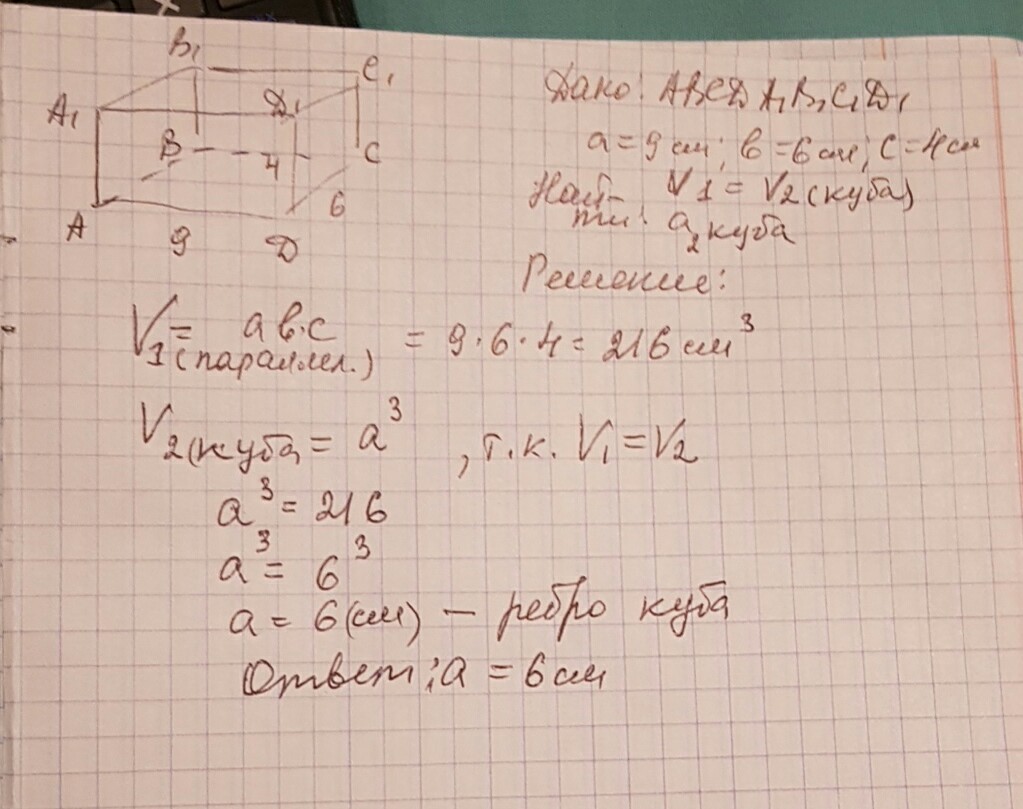 B₁
C₁
A₁
D₁
B
4
C
6
A
9
D
Дано: ABCD A₁B₁C₁D₁
a = 9 см; в = 6 см; c = 4 см
Най- V1 = V2 (куба)
ти: a₂ куба
Решение:
V₁(параллел.) = а в·с = 9·6·4 = 216 см³
V₂(куба) = a³ , т.к. V₁ = V₂
a³ = 216
a³ = 6³
a = 6 (см) – ребро куба
Ответ: a = 6 см